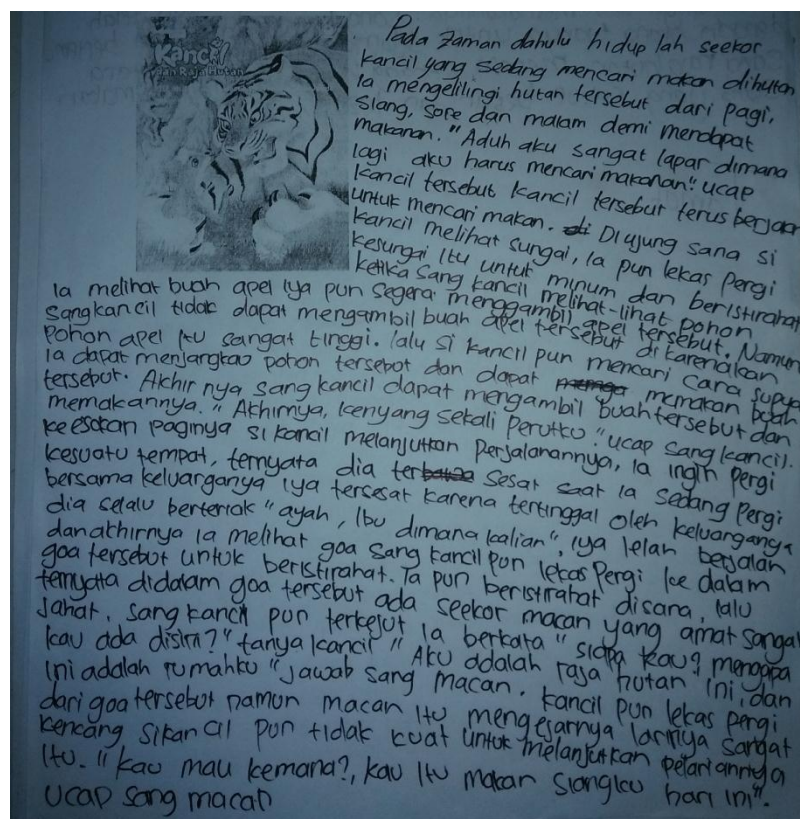 Kancil
dan Raja Hutan
Pada zaman dahulu hidup lah seekor
kancil yang sedang mencari makan dihutan
Ia mengelilingi hutan tersebut dari pagi,
siang, sore dan malam demi mendapat
makanan. "Aduh aku sangat lapar dimana
lagi aku harus mencari makanan" ucap
kancil tersebut kancil tersebut terus berjalan
untuk mencari makan. Diujung sana si
kancil melihat sungai, Ia pun lekas pergi
kesungai itu untuk minum dan beristirahat
ketika sang kancil melihat-lihat pohon
Ia melihat buah apel iya pun segera menggambil apel tersebut. Namun
sangkancil tidak dapat mengambil buah apel tersebut di karenakan
pohon apel itu sangat tinggi. lalu si kancil pun mencari cara supaya
Ia dapat menjangkau pohon tersebut dan dapat memakan buah
tersebut. Akhir nya sang kancil dapat mengambil buah tersebut dan
memakannya. "Akhirnya, kenyang sekali perutku" ucap sang kancil.
keesokan paginya si kancil melanjutkan perjalanannya, Ia ingin pergi
kesuatu tempat, ternyata dia ter sesat saat Ia sedang pergi
bersama keluarganya iya tersesat karena tertinggal oleh keluarganya
dia selalu berteriak "ayah, Ibu dimana kalian", iya lelah berjalan
danakhirnya Ia melihat goa sang kancil pun lekas pergi ke dalam
goa tersebut untuk beristirahat. Ia pun beristirahat disana, lalu
ternyata didalam goa tersebut ada seekor macan yang amat sangat
Jahat, sang kancil pun terkejut Ia berkata "siapa kau? mengapa
kau ada disini?" tanya kancil "Aku adalah raja hutan ini, dan
ini adalah rumahku" jawab sang macan. kancil pun lekas pergi
dari goa tersebut namun macan itu mengejarnya larinya sangat
kencang sikancil pun tidak kuat untuk melanjutkan pelariannya
Itu. "kau mau kemana?, kau itu makan siangku hari ini".
ucap sang macan